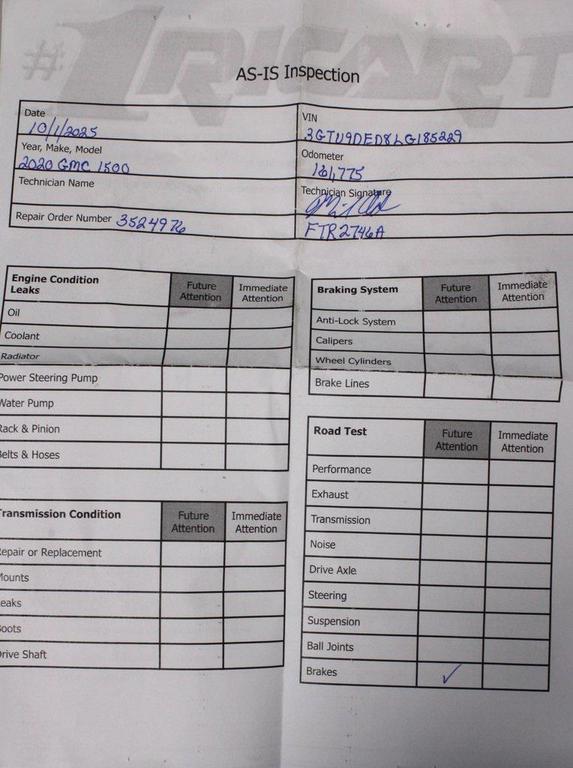 #1RICART
AS-IS Inspection
Date
10/1/2025
VIN
3GTU9DED8LG185229
Year, Make, Model
2020 GMC 1500
Odometer
Technician Name
Technician Signature
Repair Order Number 3524976
FTR2746A
Engine Condition Leaks Future Attention Immediate Attention
Oil
Coolant
Radiator
Power Steering Pump
Water Pump
Rack & Pinion
Belts & Hoses
Braking System Future Attention Immediate Attention
Anti-Lock System
Calipers
Wheel Cylinders
Brake Lines
Transmission Condition Future Attention Immediate Attention
Repair or Replacement
Mounts
Leaks
Boots
Drive Shaft
Road Test Future Attention Immediate Attention
Performance
Exhaust
Transmission
Noise
Drive Axle
Steering
Suspension
Ball Joints
Brakes ✓